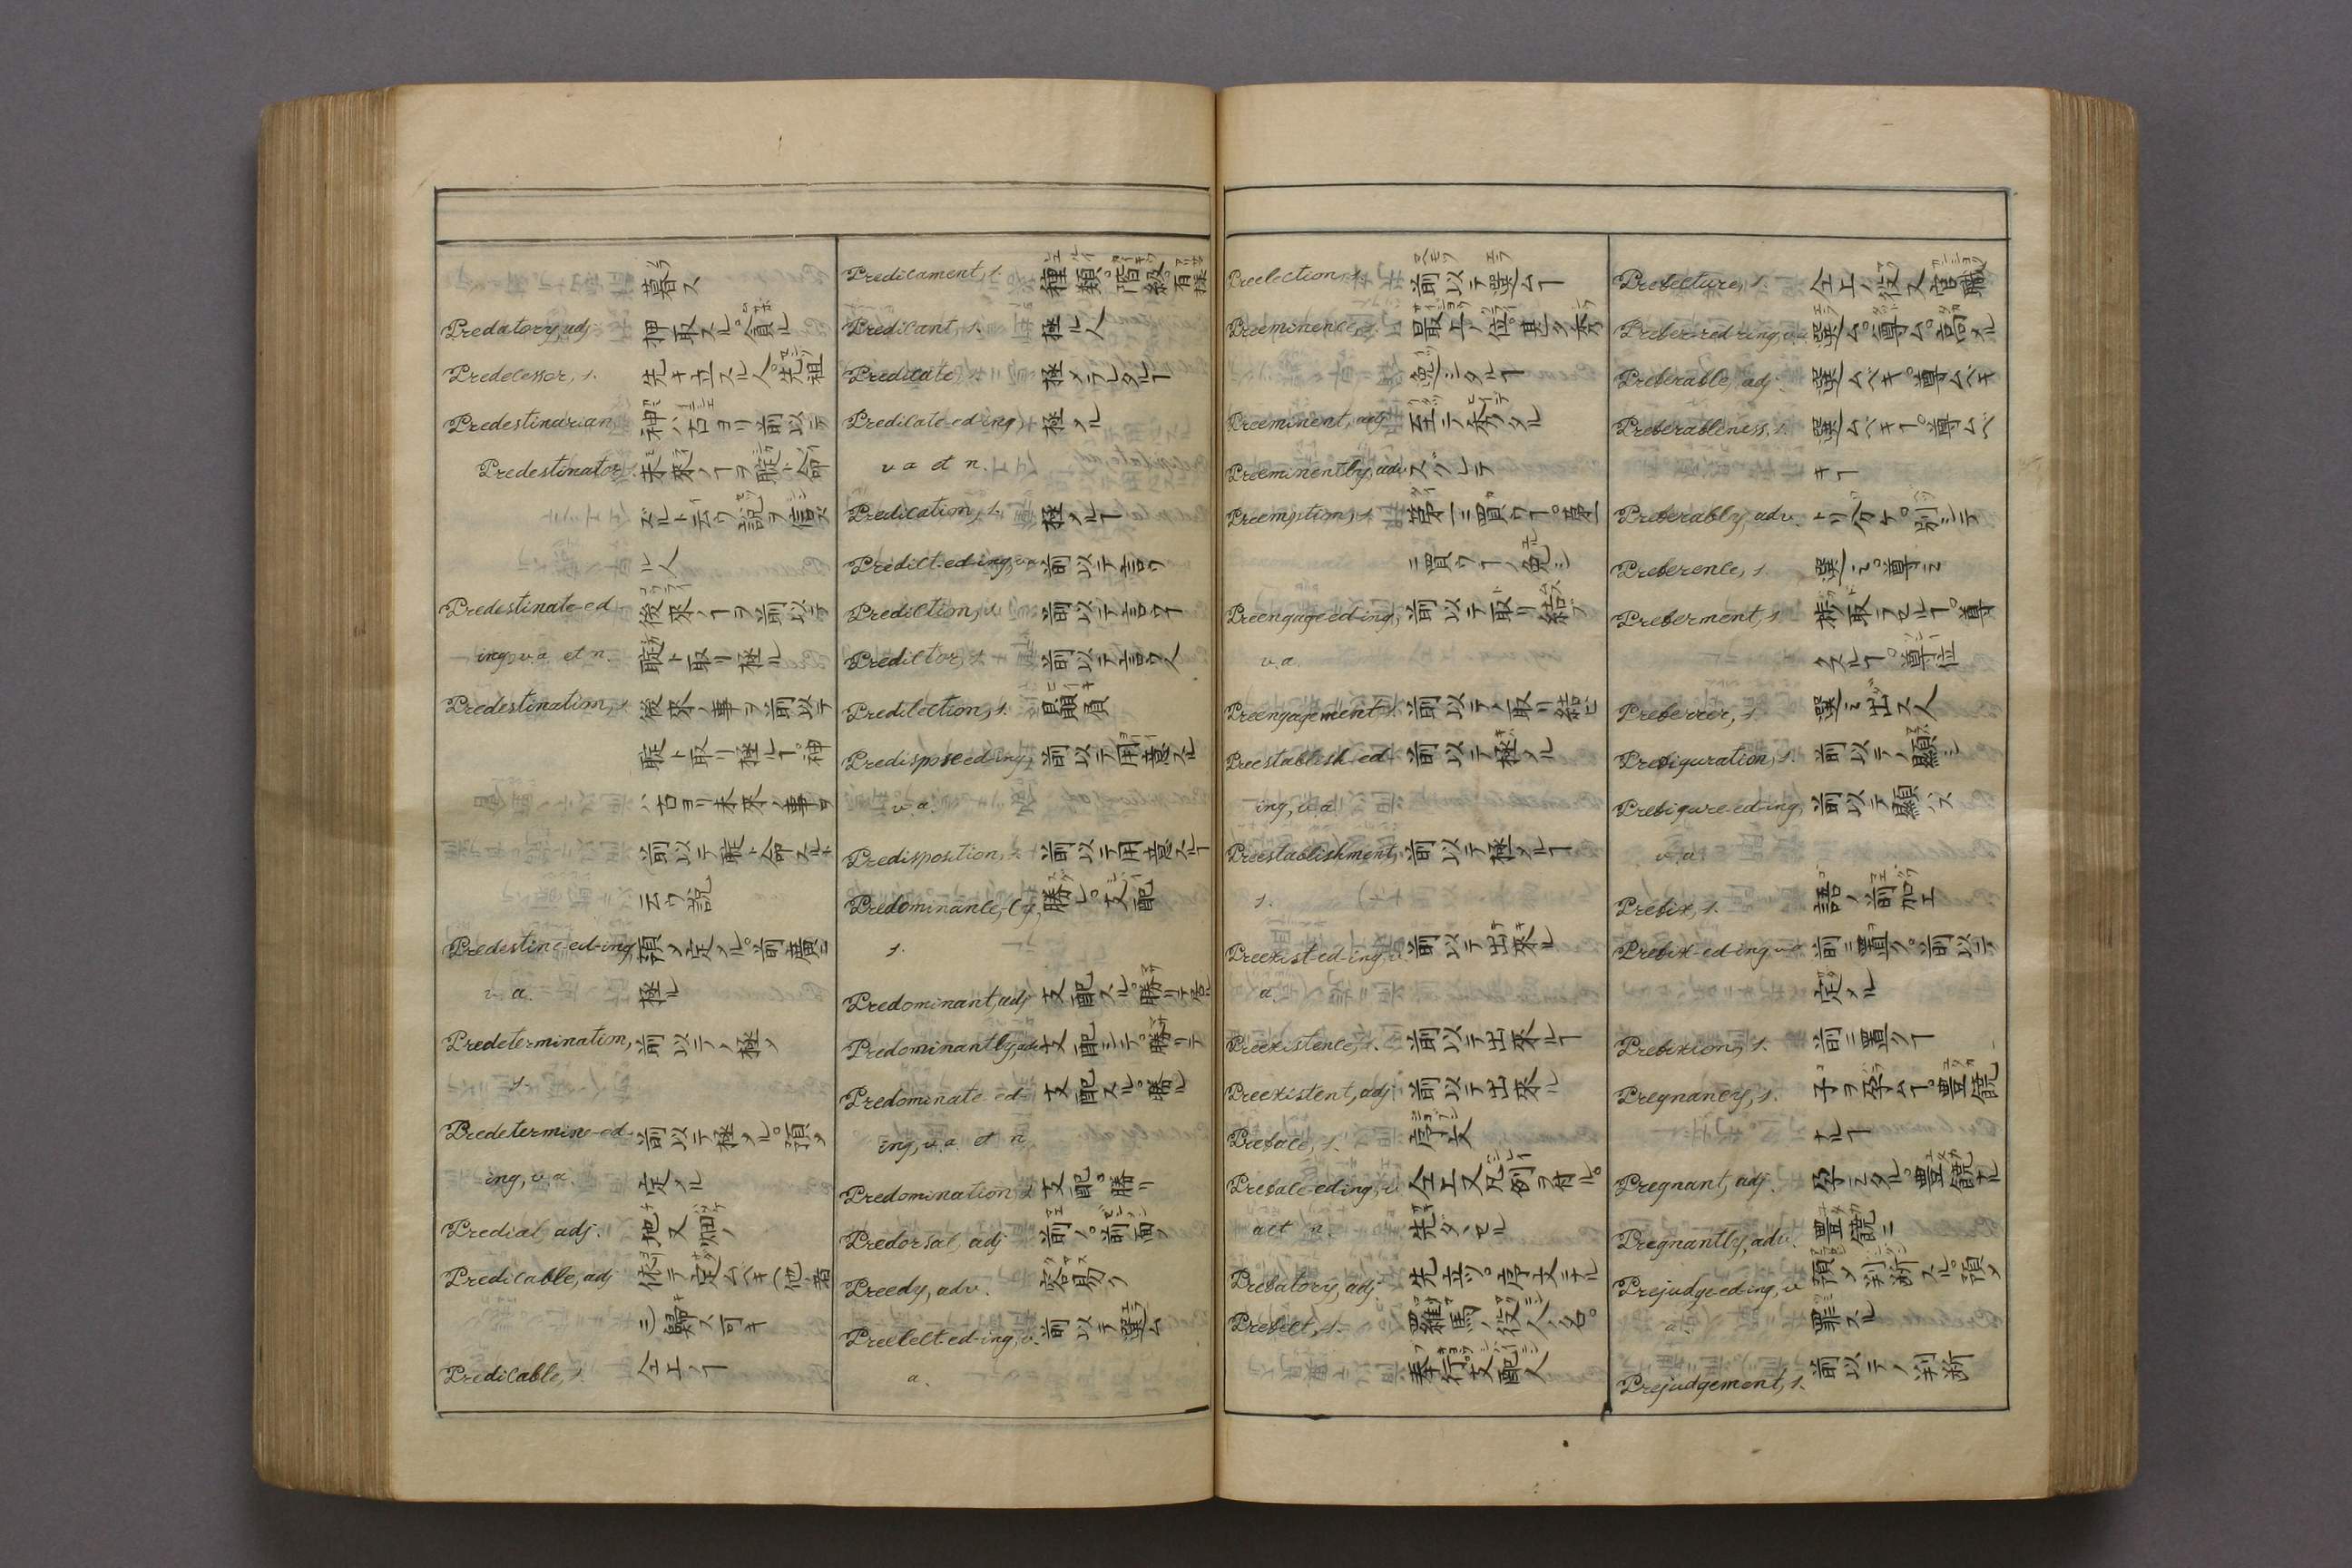 暮ス
Predatory, adj. 押取スル。貪ル
Predecessor, s. 先キ立スル人。先祖
Predestinarian 神ハ古ヨリ前以テ
Predestinator, s. 未來ノヿヲ
ズルト云ウ説ヲ信ズ
ル人
Predestinate-ed- 後來ノヿヲ前以テ
ing, v.a. et n. 取リ極ル
Predestination, s. 後來ノ事ヲ前以テ
取リ極ルヿ。神
ハ古ヨリ未來ノ事ヲ
前以テ
云ウ説
Predestine-ed-ing, 預メ定メル。前廣ニ
v.a. 極ル
Predetermination, 前以テノ極メ
s.
Predetermine-ed- 前以テ極メル。預メ
ing, v.a. 定メル
Predial, adj. 地又畑ノ
Predicable, adj. 依テ定ムベキ(他者
ニ)歸ス可キ
Predicable, s. 仝上ノヿ
Predicament, s. 種類。階級。有様
Predicant, s. 極ル人
Predicate, s. 極メラレタルヿ
Predicate-ed-ing, 極メル
v a et n.
Predication, s. 極メルヿ
Predict-ed-ing, v.a. 前以テ言ウ
Prediction, s. 前以テ言ウヿ
Predictor, s. 前以テ言ウ人
Predilection, s. 贔屓
Predispose-ed-ing, 前以テ用意スル
v.a.
Predisposition, s. 前以テ用意スルヿ
Predominance,-cy, 勝レ。支配
s.
Predominant, adj. 支配スル。勝リテ居ル
Predominantly, adv. 支配シテ。勝リテ
Predominate-ed- 支配スル。勝ル
ing, v.a. et n.
Predomination, s. 支配。勝リ
Predorsal, adj. 前ノ。前面ノ
Preedy, adv. 容易ク
Preelect-ed-ing, v. 前以テ選ム
a.
Preelection, s. 前以テ選ムヿ
Preeminence, s. 最上ノ位。甚タ秀
逸シタルヿ
Preeminent, adj. 至テ秀タル
Preeminently, adv. スグレテ
Preemption, s. 第一ニ買ウヿ。第一
ニ買ウヿノ免シ
Preengage-ed-ing, 前以テ取リ結ブ
v.a.
Preengagement, s. 前以テノ取リ結ビ
Preestablish-ed- 前以テ極メル
ing, v.a.
Preestablishment, 前以テ極メルヿ
s.
Preexist-ed-ing, v. 前以テ出來ル
a.
Preexistence, s. 前以テ出來ルヿ
Preexistent, adj. 前以テ出來ル
Preface, s. 序文
Preface-ed-ing, v. 仝上又凡例ヲ付ル。
act n. 先ダヽセル
Prefatory, adj. 先立ツ。序文ニナル
Prefect, s. 羅馬ノ役人ノ名。
奉行。支配人
Prefecture, s. 仝上ノ役又官職
Prefer-red-ring, v.a. 選ム。尊ム。高メル
Preferable, adj. 選ムベキ。尊ムベキ
Preferableness, s. 選ムベキヿ。尊ムベ
キヿ
Preferably, adv. トリ分ケ。別シテ
Preference, s. 選ミ。尊ミ
Preferment, s. 取ラセルヿ。尊
クスルヿ。尊位
Preferrer, s. 選ミ出ス人
Prefiguration, s. 前以テノ顯シ
Prefigure-ed-ing, 前以テ顯ハス
v.a.
Prefix, s. 語ノ前加エ
Prefix-ed-ing, v.a. 前ニ置ク。前以テ
定メル
Prefixion, s. 前ニ置クヿ
Pregnancy, s. 子ヲ孕ムヿ。豊饒
ナルヿ
Pregnant, adj. 孕ミタル。豊饒ナル
Pregnantly, adv. 豊饒ニ
Prejudge-ed-ing, v. 預メ判斷スル。預メ
a. 罪スル
Prejudgement, s. 前以テノ判斷